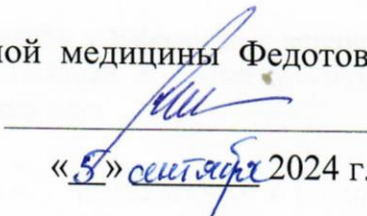 ной медицины Федотов
«5» сентября 2024 г.